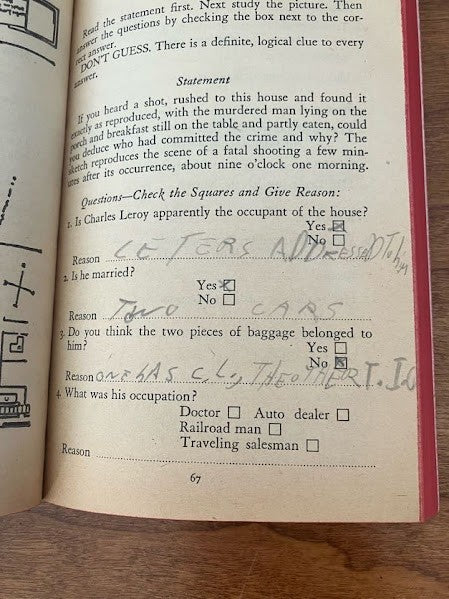 Read the statement first. Next study the picture. Then
answer the questions by checking the box next to the cor-
rect answer.
DON'T GUESS. There is a definite, logical clue to every
answer.
Statement
If you heard a shot, rushed to this house and found it
exactly as reproduced, with the murdered man lying on the
porch and breakfast still on the table and partly eaten, could
you deduce who had committed the crime and why? The
sketch reproduces the scene of a fatal shooting a few min-
utes after its occurrence, about nine o'clock one morning.
Questions—Check the Squares and Give Reason:
1. Is Charles Leroy apparently the occupant of the house?
Yes
No
Reason LETERS ADDRESSED TO him
2. Is he married?
Yes
No
Reason TWO CARS
3. Do you think the two pieces of baggage belonged to
him?
Yes
No
Reason ONE HAS C.L., THE OTHER T.
4. What was his occupation?
Doctor Auto dealer
Railroad man
Traveling salesman
Reason
67